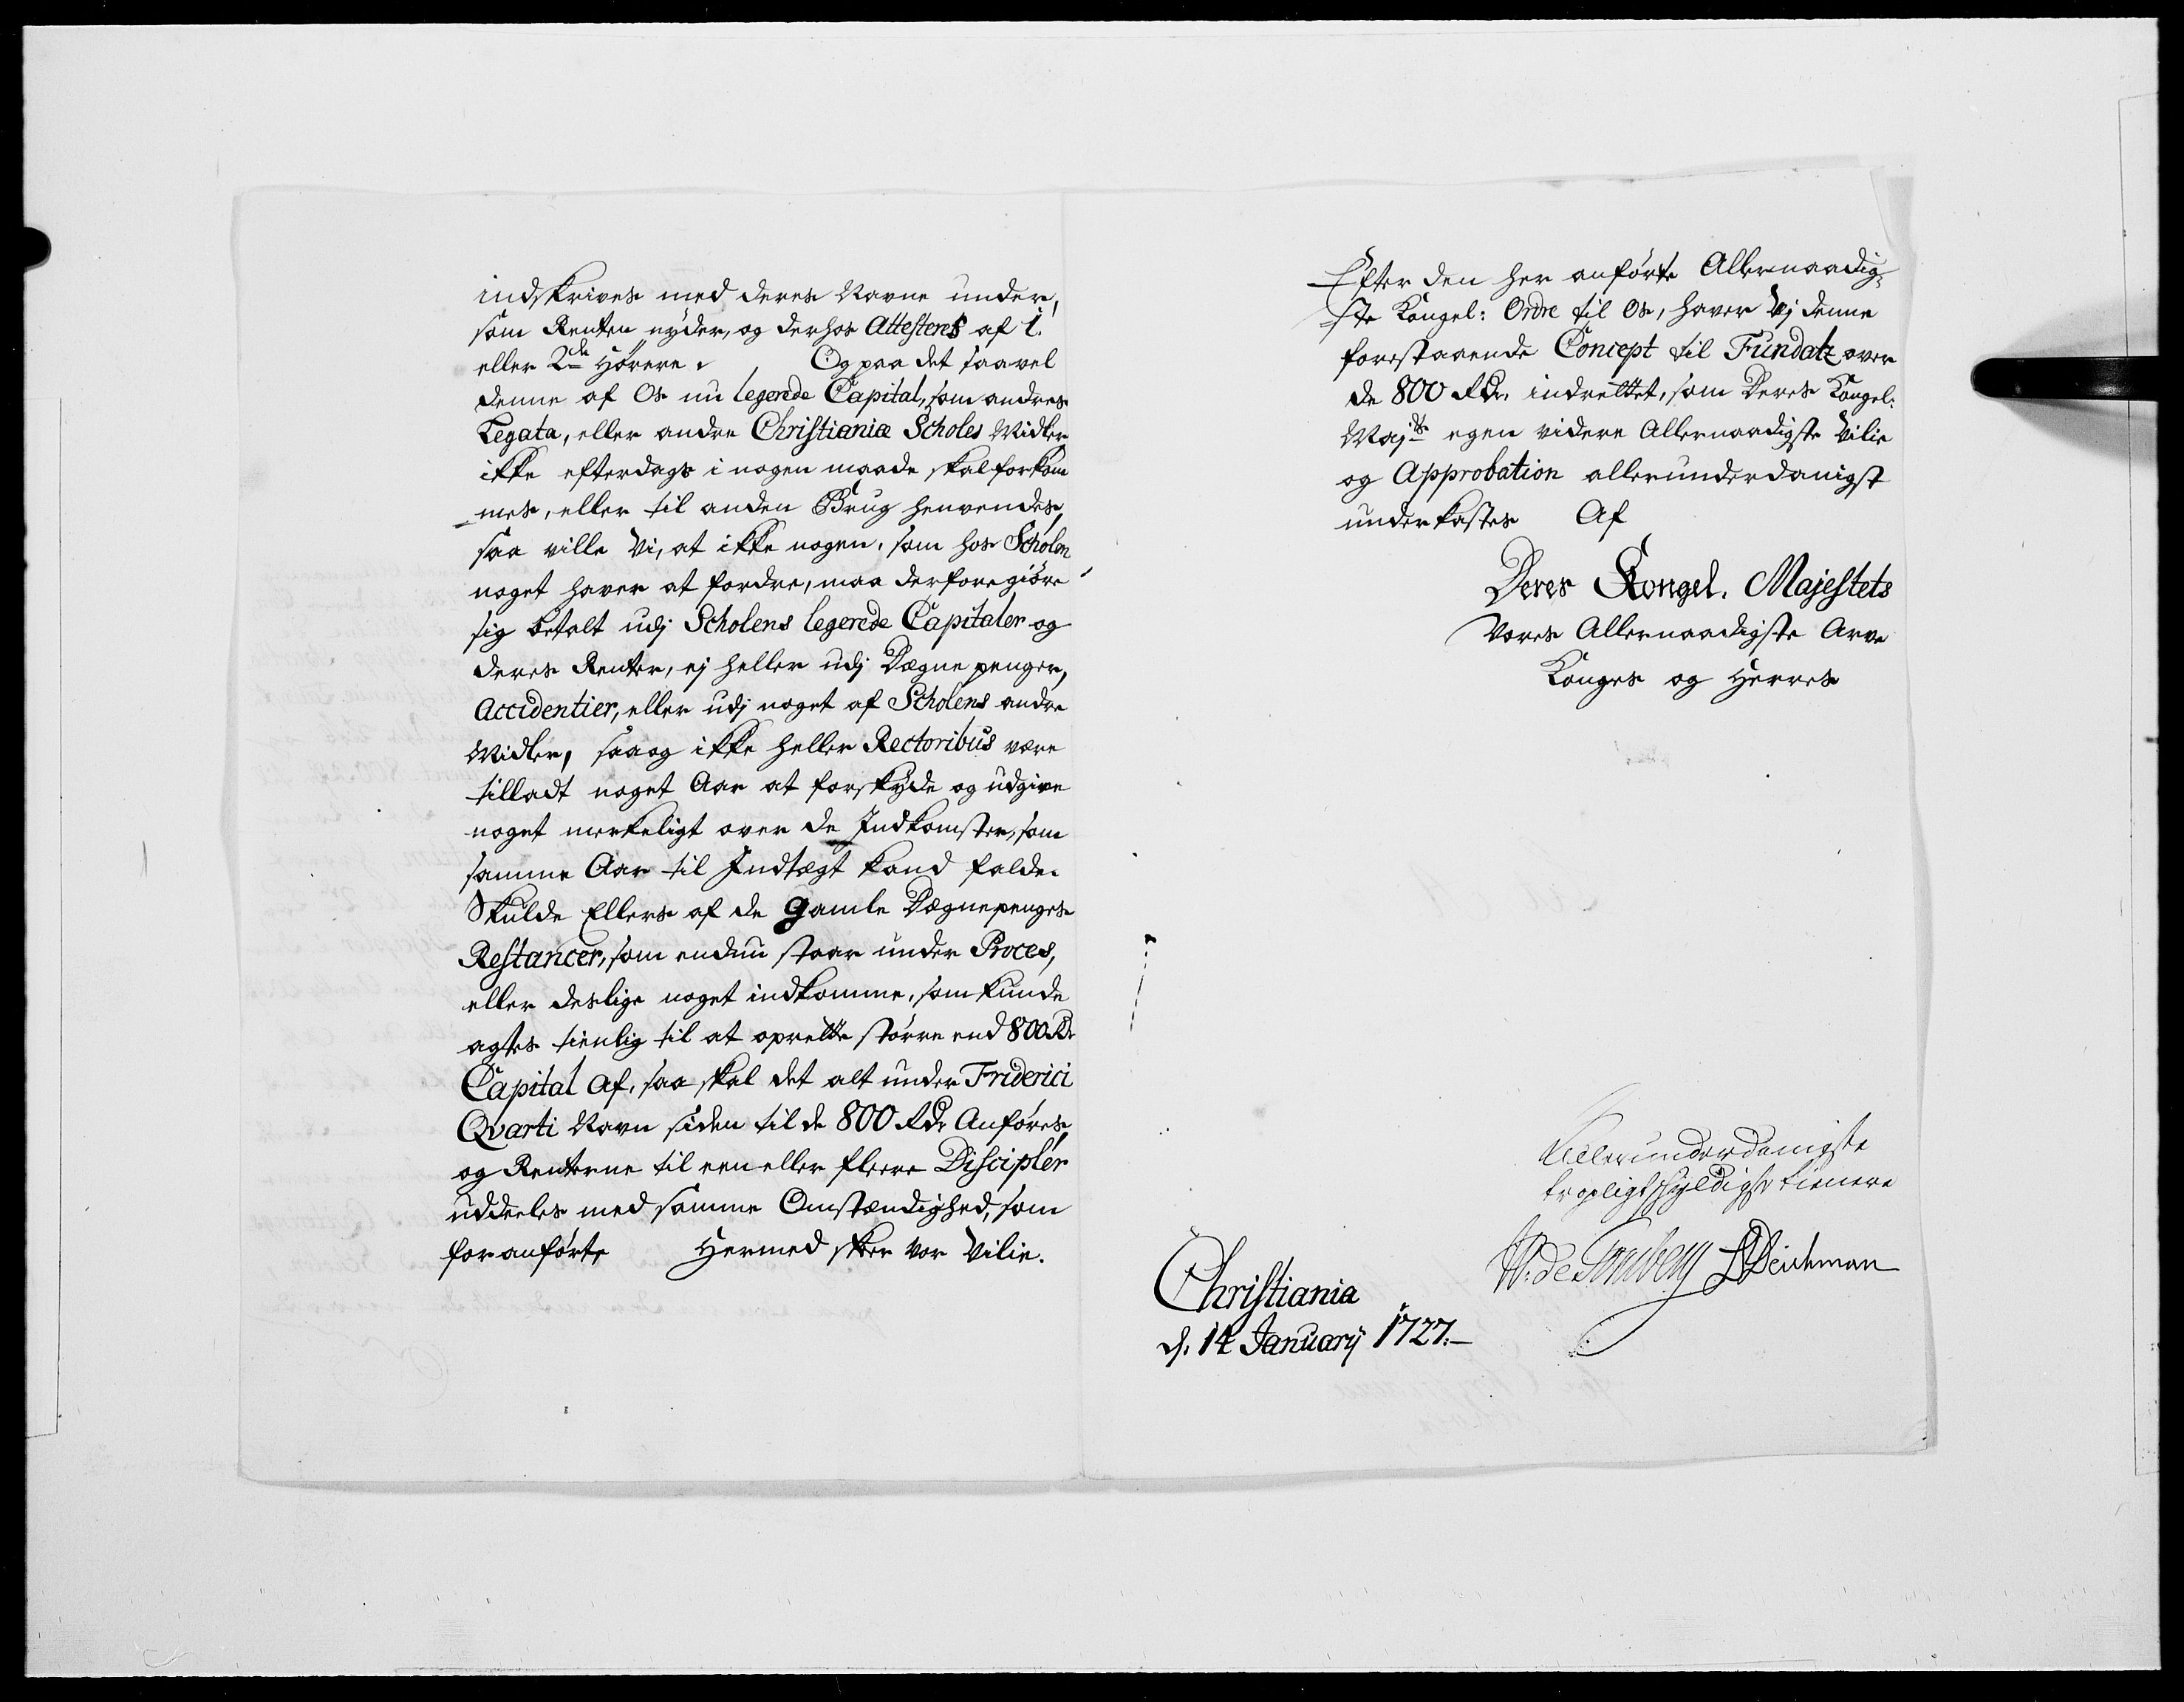 indskrives med deres Navne under,
som Renten nyder, og derhos Attesteres af 1.
eller 2de Hörere. Og paa det saavel
denne af Os nu legerede Capital, som andres
Legata, eller andre Christianiæ Scholes Midler
ikke efterdags i nogen maade skal forkom
mes, eller til anden Brug henvendes,
saa ville Vi, at ikke nogen, som hos Scholen
noget haver at fordre, maa derfore giöre
sig betalt udj Scholens legerede Capitaler og
deres Renter, ej heller udj Dægne penger,
Accidentier, eller udj noget af Scholens andre
Midler, saa og ikke heller Rectoribus være
tilladt noget Aar at forskyde og udgive
noget merkeligt over de Indkomster, som
samme Aar til Indtægt kand falde.
Skulde Ellers af de gamle Dægnepenges
Restancer, som endnu staar under Proces,
eller deslige noget indkomme, som kunde
agtes tienlig til at oprette större end 800 Rdr
Capital af, saa skal det alt under Friderici
Qvarti Navn siden til de 800 Rdr Anföres,
og Renterne til een eller fleere Discipler
uddeeles med samme Omstændighed, som
foranförte Hermed skeer vor Vilie.
Efter den her anförte Allernaadig-
ste Kongel: Ordre til Os, haver Vj denne
forestaaende Concept til Fundatz over
de 800 Rdr. indrettet, som Deres Kongel.
Majts egen videre Allernaadigste Vilie
og Approbation allerunderdanigst
underkastes Af
Deres Kongel. Majestets
Vores Allernaadigste Arve
Konges og Herres
Allerunderdanigste
tropligtskyldigste tienere
W. de Tonsberg BDeichman
Christiania
d. 14 Januarij 1727.